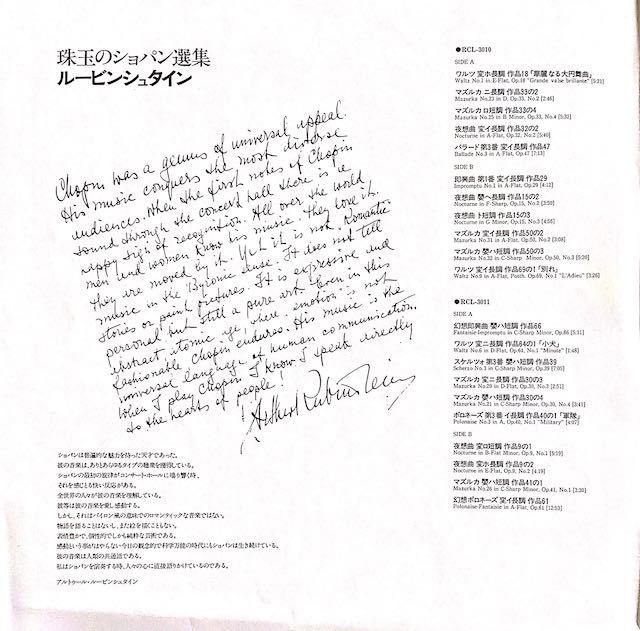 珠玉のショパン選集
ルービンシュタイン
Chopin was a genius of universal appeal.
His music conquers the most diverse
audiences. When the first notes of Chopin
sound through the concert hall there is a
happy sigh of recognition. All over the world
men and women know his music. They love it.
they are moved by it. Yet it is not Romantic
music in the Byronic sense. It does not tell
stories or paint pictures. It is expressive and
personal but still a pure art. Even in this
abstract atomic age, where emotion is not
fashionable Chopin endures. His music is the
universal language of human communication.
When I play Chopin I know I speak directly
to the hearts of people!
Arthur Rubinstein
ショパンは普遍的な魅力を持った天才であった。
彼の音楽は、ありとあらゆるタイプの聴衆を獲得している。
ショパンの最初の旋律がコンサート・ホールに鳴り響く時、
それを感じとる快い反応がある。
全世界の人々が彼の音楽を理解している。
彼等は彼の音楽を愛し感動する。
しかし、それはバイロン風の意味でのロマンティックな音楽ではない。
物語を語ることはないし、また絵を描くこともない。
表情豊かで、個性的でしかも純粋な芸術である。
感動という事がはやらない今日の観念的で科学万能の時代にもショパンは生き続けている。
彼の音楽は人類の共通語である。
私はショパンを演奏する時、人々の心に直接語りかけているのである。
アルトゥール・ルービンシュタイン
●RCL-3010
SIDE A
ワルツ 変ホ長調 作品18「華麗なる大円舞曲」
Waltz No.1 in E-Flat, Op.18 "Grande valse brillante" [5:21]
マズルカ ニ長調 作品33の2
Mazurka No.23 in D, Op.33, No.2 [2:46]
マズルカ ロ短調 作品33の4
Mazurka No.25 in B Minor, Op.33, No.4 [5:32]
夜想曲 変イ長調 作品32の2
Nocturne in A-Flat, Op.32, No.2 [5:40]
バラード 第3番 変イ長調 作品47
Ballade No.3 in A-Flat, Op.47 [7:13]
SIDE B
即興曲 第1番 変イ長調 作品29
Impromptu No.1 in A-Flat, Op.29 [4:12]
夜想曲 嬰ヘ長調 作品15の2
Nocturne in F-Sharp, Op.15, No.2 [3:50]
夜想曲 ト短調 作品15の3
Nocturne in G Minor, Op.15, No.3 [4:56]
マズルカ 変イ長調 作品50の2
Mazurka No.31 in A-Flat, Op.50, No.2 [3:08]
マズルカ 嬰ハ短調 作品50の3
Mazurka No.32 in C-Sharp Minor, Op.50, No.3 [5:20]
ワルツ 変イ長調 作品69の1「別れ」
Waltz No.9 in A-Flat, Posth. Op.69, No.1 "L'Adieu" [3:26]
●RCL-3011
SIDE A
幻想即興曲 嬰ハ短調 作品66
Fantaisie-Impromptu in C-Sharp Minor, Op.66 [5:31]
ワルツ 変ニ長調 作品64の1「小犬」
Waltz No.6 in D-Flat, Op.64, No.1 "Minute" [1:48]
スケルツォ 第3番 嬰ハ短調 作品39
Scherzo No.3 in C-Sharp Minor, Op.39 [7:05]
マズルカ 変ニ長調 作品30の3
Mazurka No.20 in D-Flat, Op.30, No.3 [2:51]
マズルカ 嬰ハ短調 作品30の4
Mazurka No.21 in C-Sharp Minor, Op.30, No.4 [3:41]
ポロネーズ 第3番 イ長調 作品40の1「軍隊」
Polonaise No.3 in A, Op.40, No.1 "Military" [4:07]
SIDE B
夜想曲 変ロ短調 作品9の1
Nocturne in B-Flat Minor, Op.9, No.1 [5:19]
夜想曲 変ホ長調 作品9の2
Nocturne in E-Flat, Op.9, No.2 [4:19]
マズルカ 嬰ハ短調 作品41の1
Mazurka No.26 in C-Sharp Minor, Op.41, No.1 [3:30]
幻想ポロネーズ 変イ長調 作品61
Polonaise-Fantaisie in A-Flat, Op.61 [12:53]